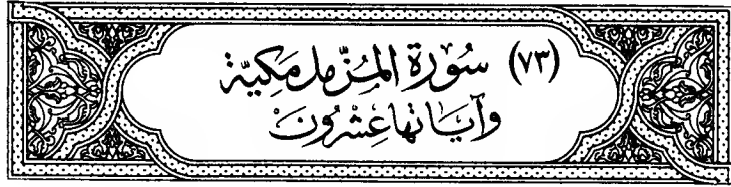 (٧٣) سُورَة المُزَّمل مَكِيّة
وَآيَاتهَا عِشْرُونَ